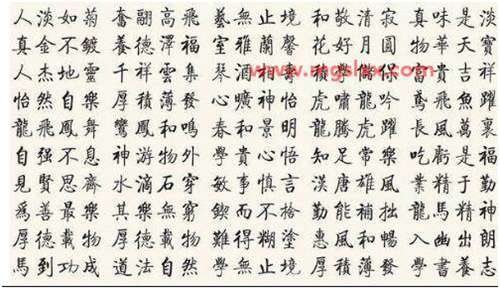 人淡如菊 奮翩高飛 藝無止境 和敬清寂 真味是淡
真金不鍍 養德澤福 室雅蘭馨 花好月圓 物華天寶
人杰地靈 千祥雲集 琴 吉祥
怡然自樂 厚積薄發 心曠神怡 虎嘯龍吟 鳶飛魚躍
龍飛鳳舞 鸞鳳和鳴 春和景明 龍騰虎躍 長風萬裏
自强不息 神游物外 學貴心悟 知足常樂 吃虧是福
見賢思齊 水滴石穿 敏事慎言 漢唐雄風 業精于勤
爲善最樂 其樂無窮 鍥而不捨 勤能補拙 龍馬精神
厚德載物 厚德載物 難得糊塗 惠風和暢 入幽出朗
馬到功成 道法自然 學無止境 厚積薄發 學書養志